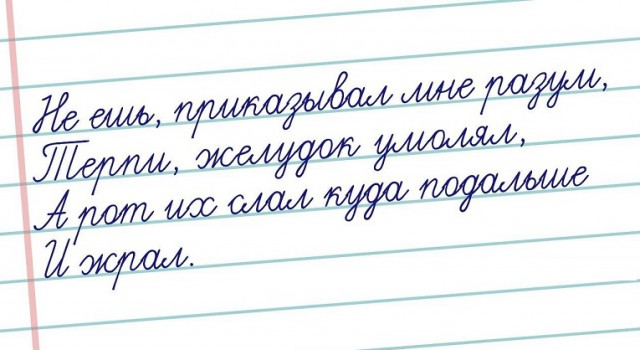 Не ешь, приказывал мне разум,
Терпи, желудок умолял,
А рот их слал куда подальше
И жрал.